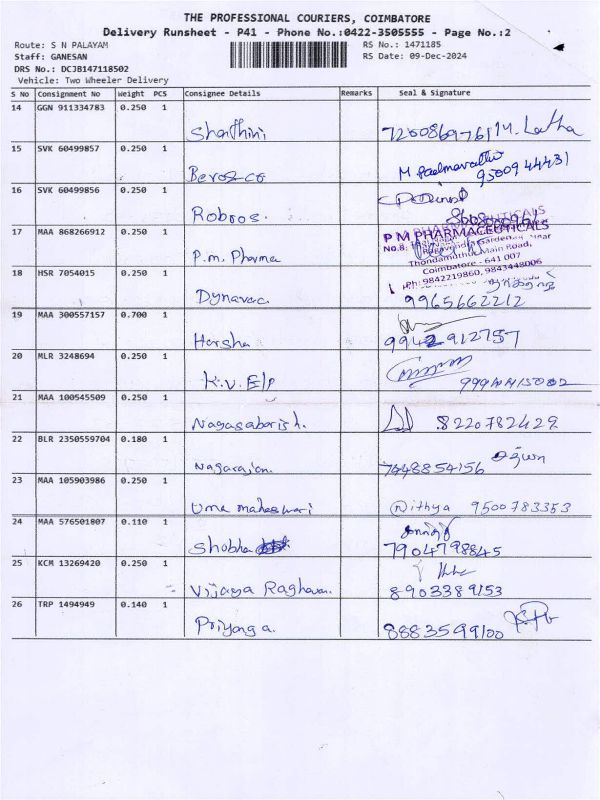 THE PROFESSIONAL COURIERS, COIMBATORE
Delivery Runsheet - P41 - Phone No.:0422-3505555 - Page No.:2
Route: S N PALAYAM
RS No.: 1471185
Staff: GANESAN
RS Date: 09-Dec-2024
DRS No.: DCJB147118502
Vehicle: Two Wheeler Delivery
S No Consignment No Weight PCS Consignee Details Remarks Seal & Signature
14 GGN 911334783 0.250 1
Shanthini 7200869761 M. Latha
15 SVK 60499857 0.250 1
M. Padmavathi
Berosco 9500944431
16 SVK 60499856 0.250 1
Robros.
17 MAA 868266912 0.250 1
P M PHARMACEUTICALS
Thondamuthur Main Road,
Coimbatore - 641 007
P.m. Pharma
Ph: 9842219860, 9843448006
18 HSR 7054015 0.250 1
Dynavac 9965662212
19 MAA 300557157 0.700 1
Harsha 9942912757
20 MLR 3248694 0.250 1
K.V. E/P
21 MAA 100545509 0.250 1
Nagasabarish. 8220782429
22 BLR 2350559704 0.180 1
Nagarajan. 7448854156
23 MAA 105903986 0.250 1
Uma maheswari Nithya 9500783353
24 MAA 576501807 0.110 1
Shobha 7904798845
25 KCM 13269420 0.250 1
Vijaya Raghavan. 8903389153
26 TRP 1494949 0.140 1
Priyanga. 8883599100